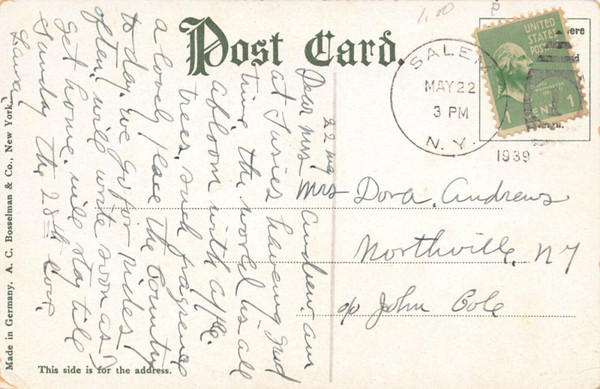 1.00
Post Card.
SALEM
MAY 22
3 PM
N. Y.
1939
UNITED
STATES
1 CENT 1
Mrs Dora. Andrews
Northville, NY
c/o John Cole
Dear Mrs Andrew. am
at Susies haveing good
time the world is all
abloom with apple.
trees, such fragrence
a lovely place the Country
to day, we go for rides
often, will write soon as I
get home. will stay tile
Sunday the 28th Love,
Made in Germany. A. C. Bosselman & Co., New York.
This side is for the address.